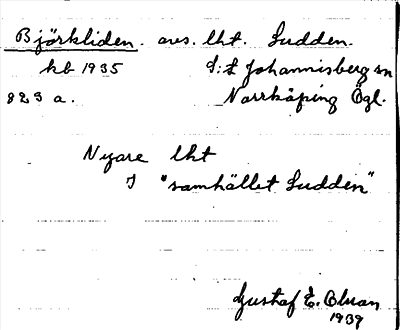 Björkliden. avs. lht. Sudden.
kb 1935 S:t Johannisberg sn
823 a. Norrköping Ögl.
Nyare lht
I "samhället Sudden"
Gustaf E. Olsson
1939